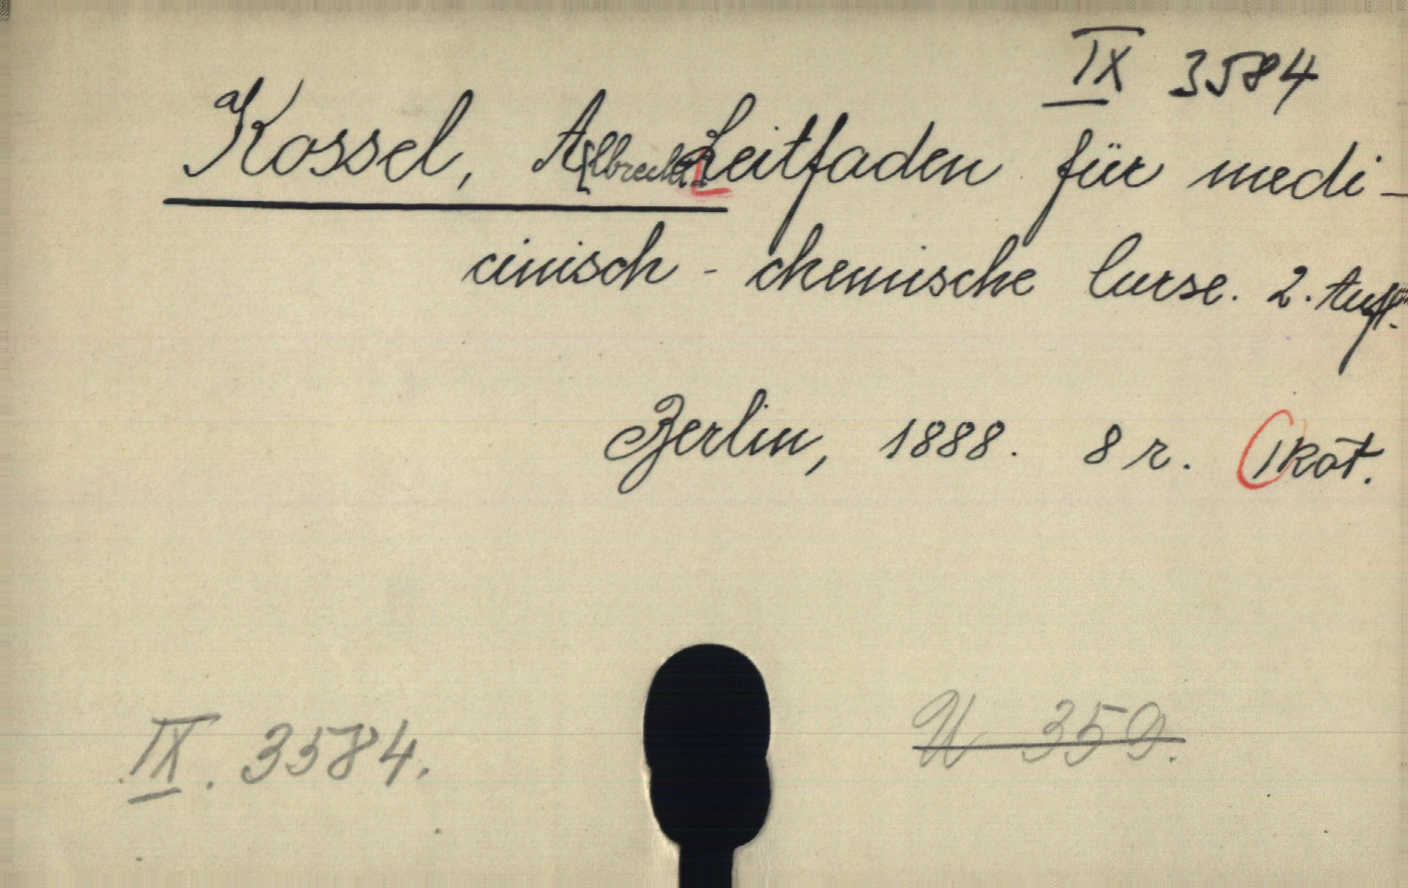 IX 3584
Kossel, A[lbrecht] Leitfaden für medi-
cinisch-chemische Curse. 2. Aufl.
Berlin, 1888. 8 r. 1 köt.
IX. 3584. U 350.